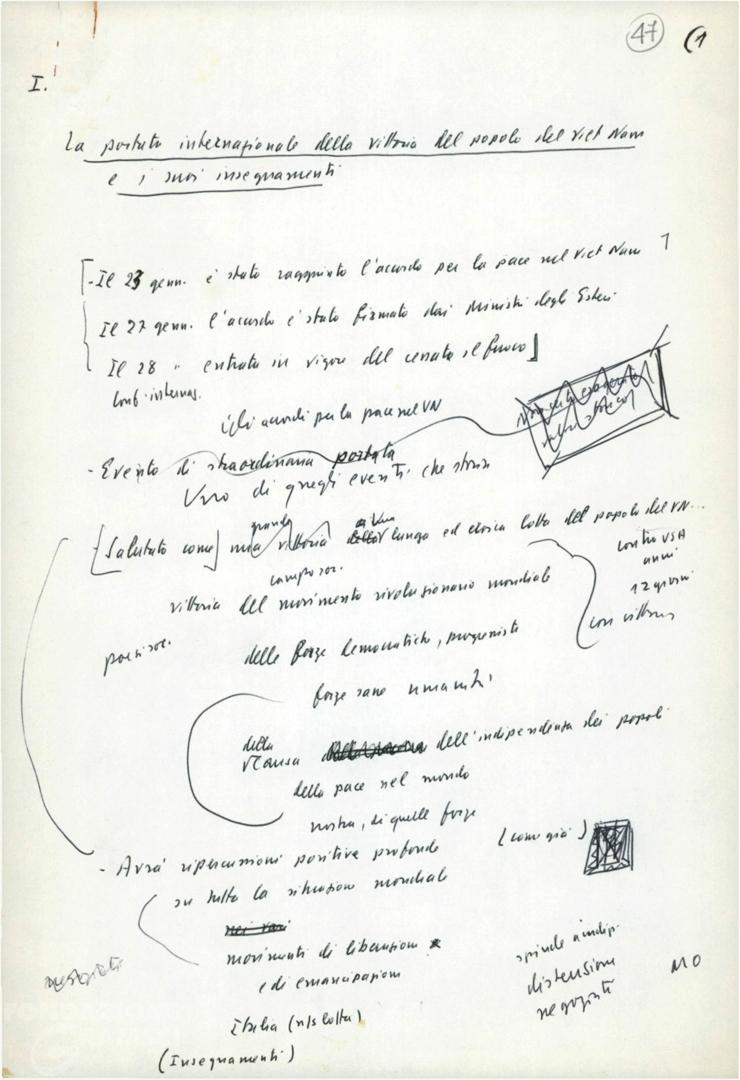 47 (1
I.
La portata internazionale della vittoria del popolo del Viet Nam
e i suoi insegnamenti
[- Il 23 genn. è stato raggiunto l'accordo per la pace nel Viet Nam ]
Il 27 genn. l'accordo è stato firmato dai Ministri degli Esteri
Il 28 " entrata in vigore del cessato il fuoco]
Conf. internaz.
gli accordi per la pace nel VN
- Evento di straordinaria portata
Uno di quegli eventi che
[Salutato come] una grande vittoria lunga ed eroica lotta del popolo del VN...
contro USA
anni
12 giorni
con vittoria
campo soc.
vittoria del movimento rivoluzionario mondiale
paesi soc.
delle forze democratiche, progressiste
forze sane umanità
della causa dell'indipendenza dei popoli
della pace nel mondo
nostra, di quelle forze
- Avrà ripercussioni positive profonde (come già)
su tutta la situazione mondiale
nei vari
movimenti di liberazione
e di emancipazione
spinde a indip.
distensione
negoziati
MO
Italia (n/s lotta)
(Insegnamenti)